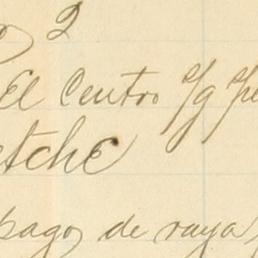 2
El Centro c/g
etche
pago de raya